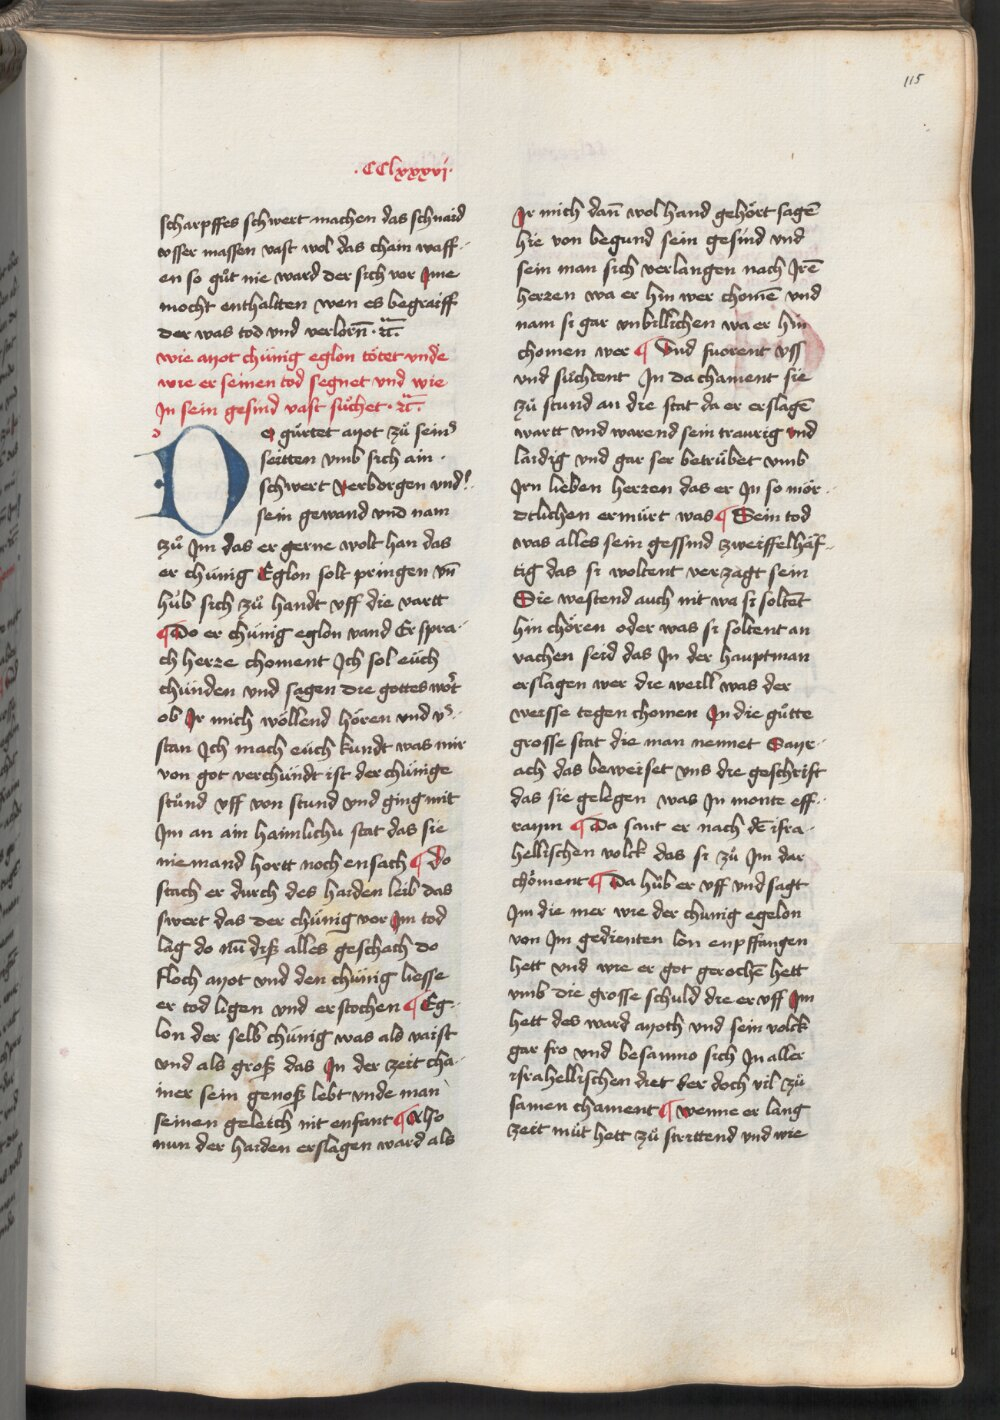 115
·CClxxxvj·
scharpffes schwert machen das schnaid
vsser massen vast wol das chain waff-
en so gůt nie ward der sich vor Jme
mocht enthaltten wen es begraiff
der was tod vnd verlorñ · ꝛc̄.
wie ayot chünig eglon tötet vnde
wie er seinen tod segnet vnd wie
Jn sein gesind vast sůchet · ꝛc̄.
Do gürtet ayot zů seind
seitten vmb sich ain ·
schwert verborgen vnd'
sein gewand vnd nam
zů Jm das er gerne wolt han das
er chünig Eglon solt pringen vn̄
hůb sich zů handt vff die vartt
¶ Do er chünig eglon vand Er spra-
ch herze choment Jch sol eüch
chünden vnd sagen die gottes wort
ob Jr mich wöllend hören vnd v'-
stan Jch mach euch kundt was mir
von got verchündt ist der chünige
stůnd vff von stund vnd ging mit
Jm an ain haimlichu stat das sie
niemand hortt noch ensach ¶ do
stach er durch des haiden leib das
swert das der chünig vor Jm tod
lag do nū diß alles geschach do
Floch ayot vnd den chünig liesse
er tod ligen vnd erstochen ¶ Eg-
lon der selb chünig was als vaist
vnd als groß das Jn der zeit cha-
iner sein genoß lebt vnde man
seinen geleich nit enfant ¶ Also
nun der haiden erslagen ward als
Jr mich dan̄ wol hand gehört sagē
hie von begund sein gesind vnd
sein man sich verlangen nach Jrē
herzen wa er hin wer chomē vnd
nam si gar vnbillichen wa er hin
chomen wer ¶ Vnd fuorent vss
vnd sůchtent Jn da chament sie
zů stund an die stat da er erslagē
wartt vnd warend sein traurig vnd
laidig vnd gar ser betrübet vmb
Jrn lieben herzen das er Jn so mör-
dtlichen ermürt was ¶ Sein tod
was alles sein gessind zweiffelhäf-
tig das si woltent verzagt sein
Sie westend auch nit wa si soltēt
hin chören oder was si soltent an
vachen seid das Jn der hauptman
erslagen wer die weill was der
weisse tegen chomen Jn die gůtte
grosse stat die man nennet Sayr-
ach das beweiset vns die geschrift
das sie gelegen was Jn monte eff-
raym ¶ Da sant er nach dē isra-
hellischen volck das si zů Jm dar
chöment ¶ Da hůb er vff vnd sagt
Jm die mer wie der chünig egelon
von Jm gedienten lon enpffangen
hett vnd wie er got gerochē hett
vmb die grosse schuld die er vff Jm
hett des ward ayoth vnd sein volck
gar fro vnd besamno sich Jn aller
israhellischen diet der doch vil zů
samen chament ¶ wenne er lang
zeit můt hett zů strittend vnd wie